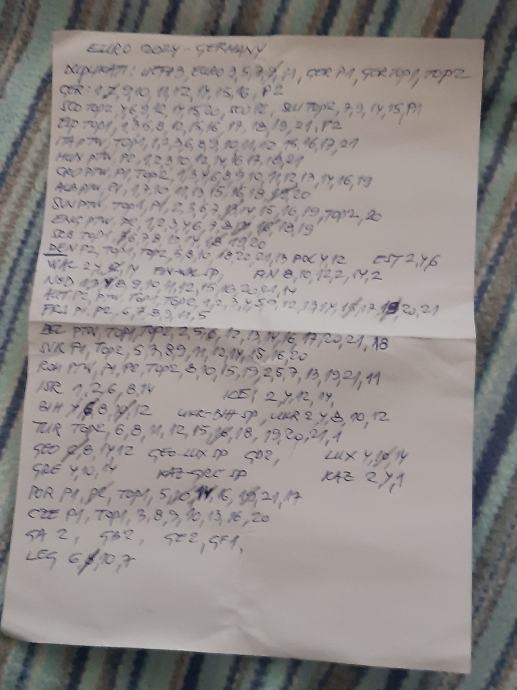 EURO 2024 - GERMANY
DUPLIKATI: UEFA 3, EURO 3, 5, 7, 9, 11, GER P1, GER TOP1, TOP2
GER: 1, 2, 9, 10, 11, 12, 14, 15, 16, P2
SCO TOP2, 4, 6, 9, 12, 14, 15, 20, SUI TOP2, 7, 9, 14, 15, P1
TOP1, 1, 3, 6, 8, 12, 15, 16, 17, 18, 19, 21, P2
ITA PTW, TOP1, 1, 2, 3, 6, 8, 9, 10, 11, 12, 15, 16, 17, 21
HUN PTW, P2, 1, 2, 3, 10, 12, 14, 16, 17, 18, 21
CRO PTW, P1, TOP2, 1, 3, 4, 6, 8, 9, 10, 11, 12, 13, 14, 16, 19
ALB PTW, P1, 1, 7, 10, 11, 13, 15, 16, 18, 19, 20
SVN PTW, TOP1, P1, 2, 3, 6, 7, 13, 14, 15, 16, 19, TOP2, 20
ENG PTW, P2, 1, 2, 3, 4, 6, 7, 8, 16, 18, 19
SRB TOP1, 6, 7, 8, 14, 18, 19, 20
DEN P2, TOP1, TOP2, 5, 8, 10, 18, 20, 21, 13 POL 4, 12 EST 2, 4, 6
14 SP, FIN 8, 10, 12, 2, 14, 2
NED 8, 9, 10, 11, 12, 15, 10, 20, 21, 14
AUT P2, PTW, TOP1, TOP2, 1, 2, 3, 4, 5, 9, 12, 13, 14, 17, 19, 20, 21
FRA P1, P2, 6, 7, 8, 9, 11, 5
PTW, TOP1, TOP2, 2, 5, 6, 12, 13, 14, 16, 17, 20, 21, 18
SVK P1, TOP2, 5, 7, 8, 9, 11, 12, 14, 15, 16, 20
ROU PTW, P1, P2, TOP2, 8, 10, 5, 19, 2, 5, 7, 13, 19, 21, 11
ISR 1, 2, 6, 8, 14 ICE 2, 4, 12, 14,
BIH 4, 6, 8, 12 UKR-BIH SP, UKR 2, 4, 8, 10, 12
TUR TOP2, 6, 8, 11, 12, 15, 16, 18, 19, 20, 21, 1
GEO 6, 8, 14, 12 GEO-LUX SP GD2, LUX 4, 10, 14
GRE 4, 10, 14 KAZ-GRE SP KAZ 2, 4, 1
POR P1, P2, TOP1, 5, 10, 14, 16, 19, 21, 17
CZE P1, TOP1, 3, 8, 9, 10, 13, 16, 20
GA 2, GB2, GE2, GF1,
LEG 6, 8, 10, 7